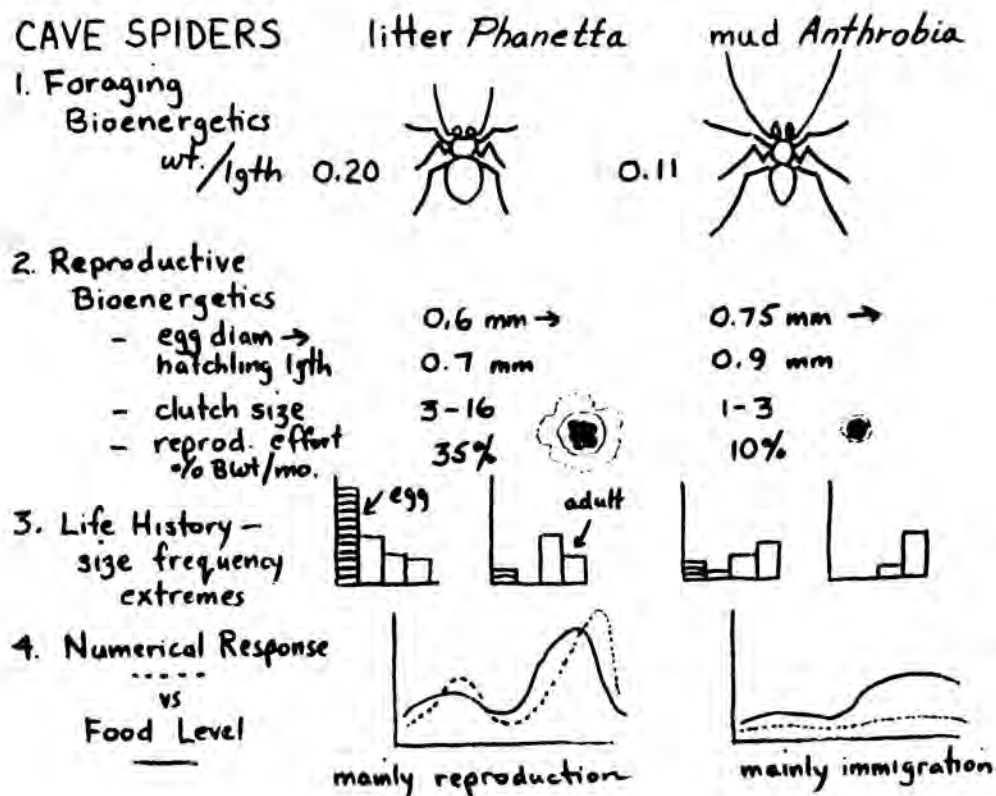 CAVE SPIDERS litter Phanetta mud Anthrobia
1. Foraging
Bioenergetics
wt./lgth 0.20 0.11
2. Reproductive
Bioenergetics
- egg diam → 0.6 mm → 0.75 mm →
hatchling lgth 0.7 mm 0.9 mm
- clutch size 3-16 1-3
- reprod. effort 35% 10%
% Bwt/mo.
egg adult
3. Life History -
size frequency
extremes
4. Numerical Response
vs
Food Level
mainly reproduction mainly immigration